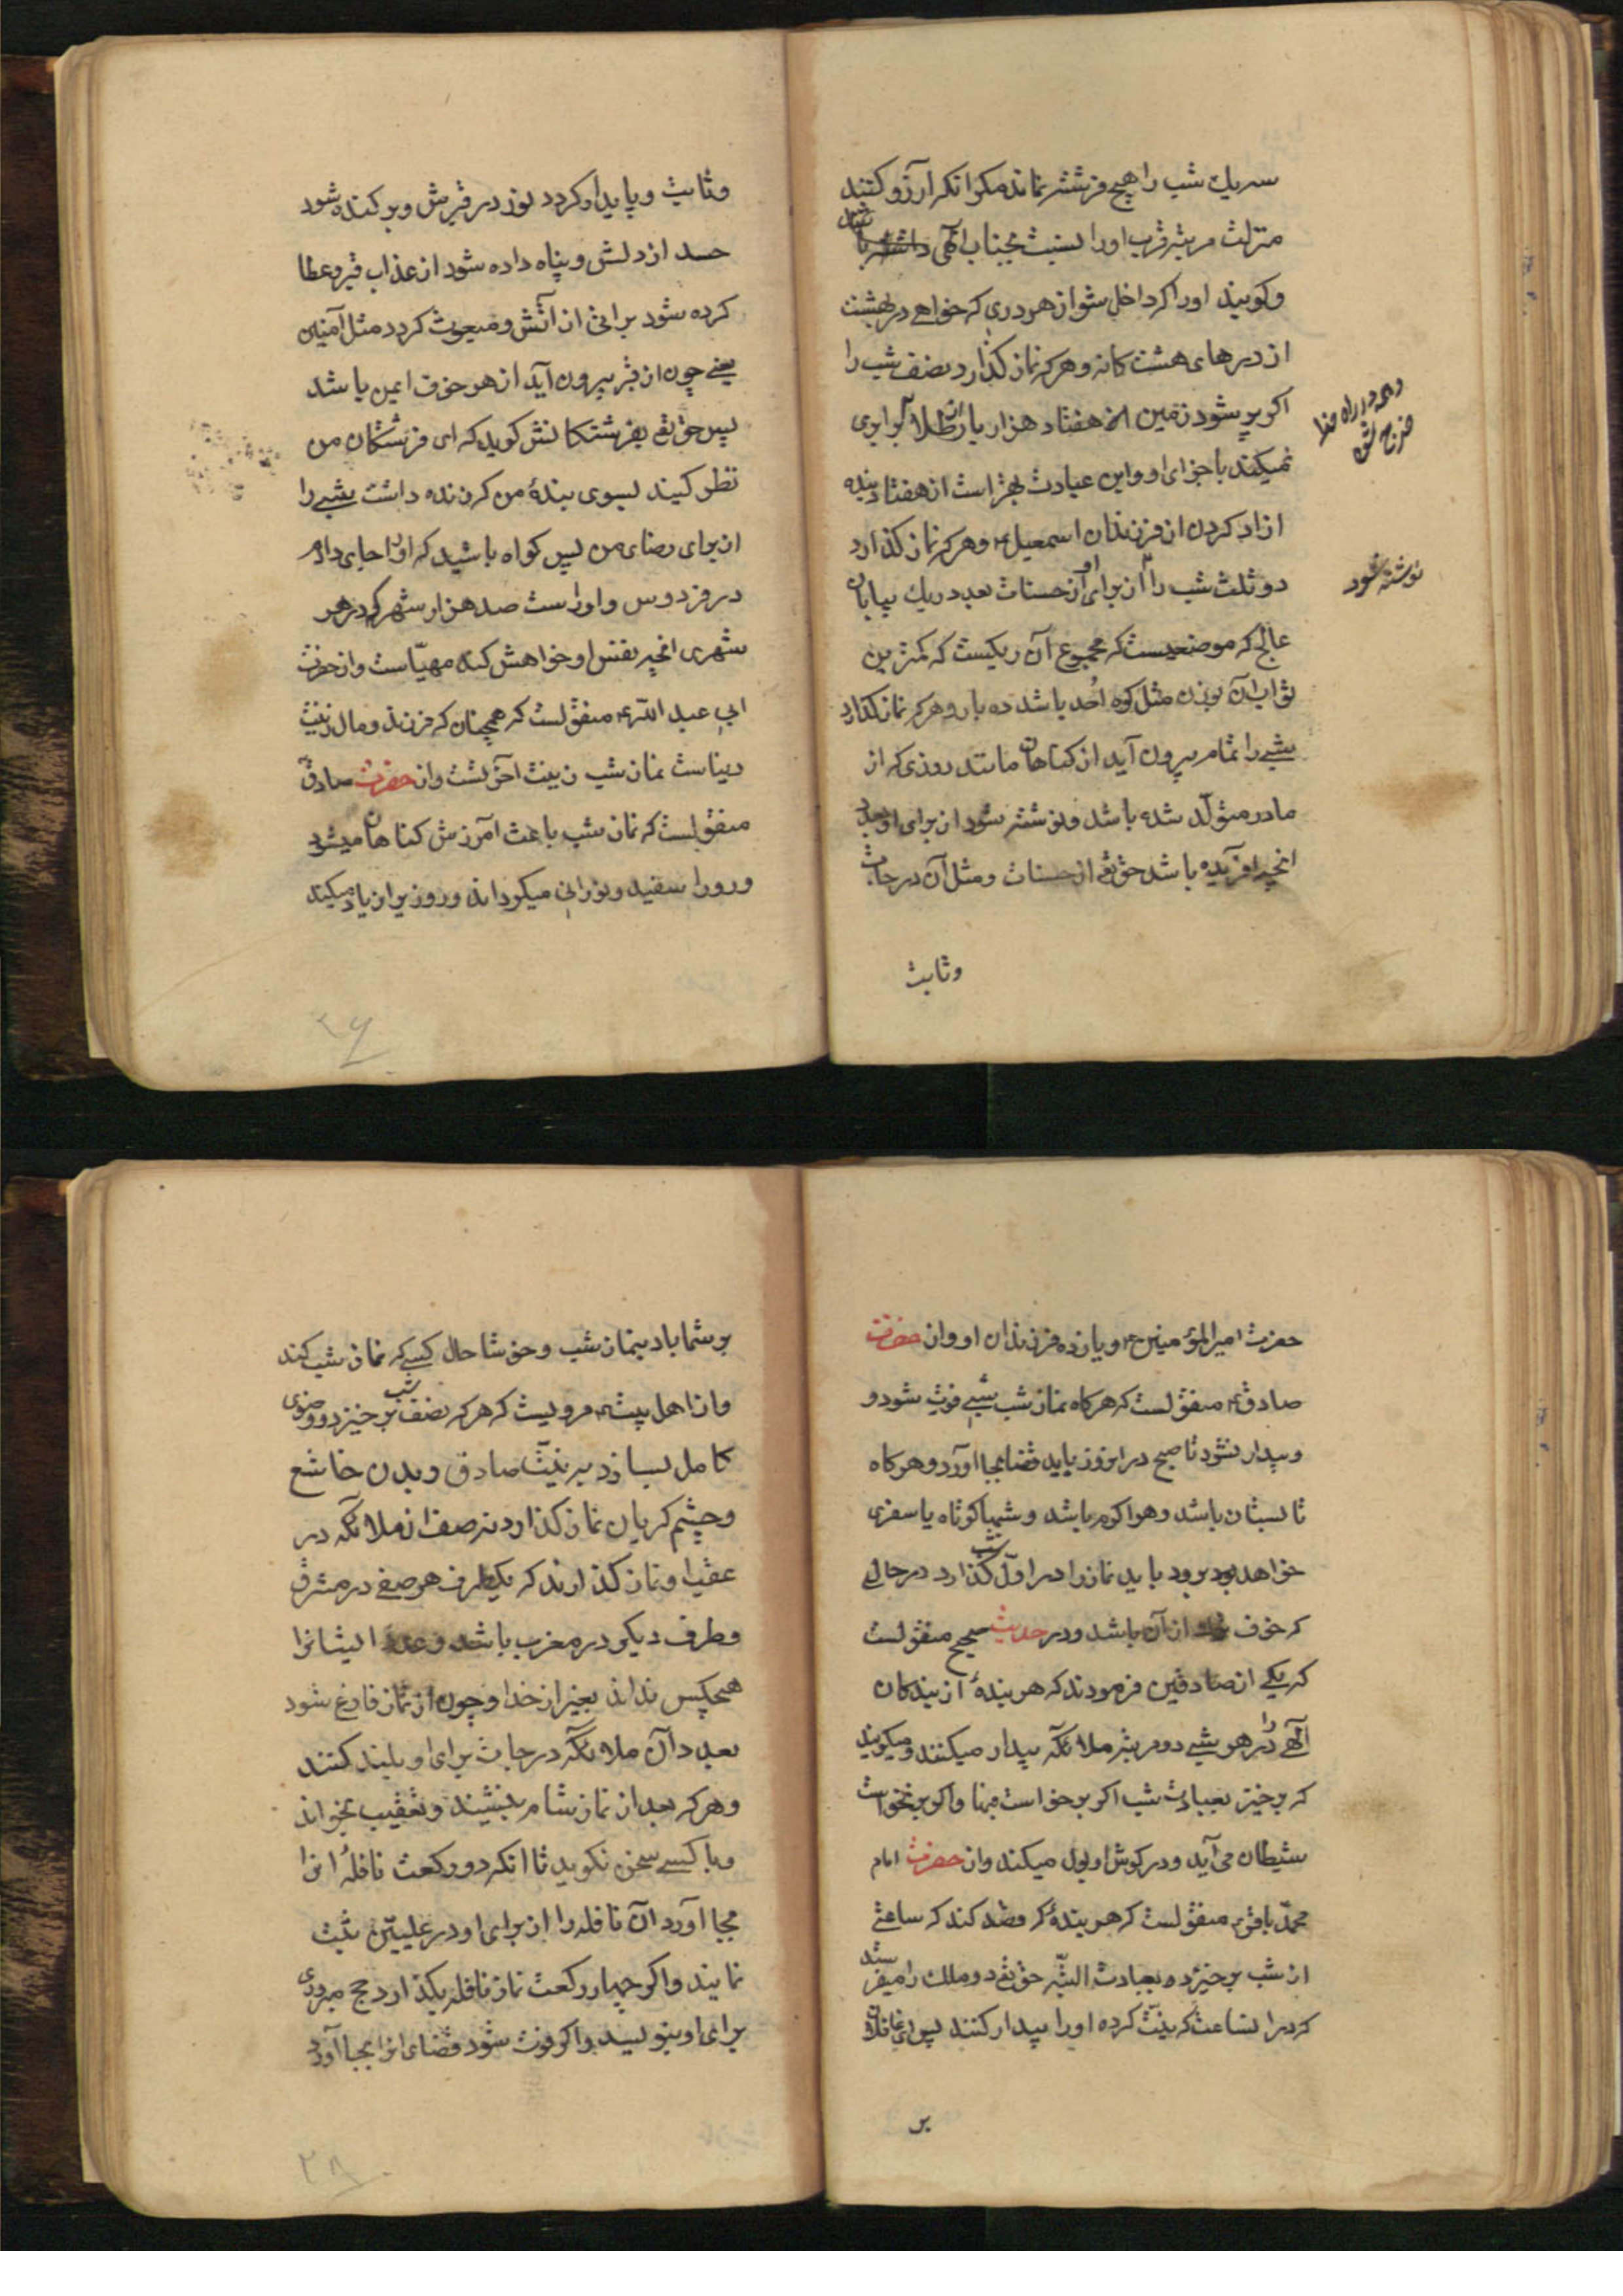 سریك شب را هیچ فرشته نماند مکر انکه ارزو کنند
منزلت مرتبه قرب او را نسبت بجناب الهی داشته باشد
و کویند او را که داخل شو از هر دری که خواهی در بهشت
از درهای هشت کانه و هر که نماز کذارد نصف شب را
اکر پر شود زمین از هفتاد هزار بار از طلا برابری
نمیکند با جزای او و این عبادت بهتر است از هفتاد بنده
ازاد کردن از فرزندان اسمعیل و هر که نماز کذارد
دو ثلث شب را از برای او از حسنات بعدد ریك بیابان
عالج که موضعیست که مجموع آن ریکیست که کمترین
ثواب آن بوزن مثل کوه اُحد باشد ده بار و هر که نماز کذارد
شبی را تمام بیرون آید از کناهان مانند روزی که از
مادر متولّد شده باشد و نوشته شود از برای او بعدد
انچه افریده باشد حق تع از حسنات و مثل آن درجات
وثابت
و همه در راه خدا
خرج کند
نوشته شود
وثابت و پایدار کردد نور در قبرش و بر کنده شود
حسد از دلش و پناه داده شود از عذاب قبر و عطا
کرده شود براتی از آتش و مبعوث کردد مثل آمنین
یعنی چون از قبر بیرون آید از هر خوف ایمن باشد
پس حق تع بفرشتکانش کوید که ای فرشتکان من
نظر کنید بسوی بندهٔ من که زنده داشت شبی را
از برای رضای من پس کواه باشید که او را جای دادم
در فردوس و او راست صد هزار شهر که در هر
شهری انچه نفس او خواهش کند مهیّاست و از حضرت
ابی عبد الله منقولست که همچنان که فرزند و مال زینت
دنیاست نماز شب زینت آخرتست و از حضرت صادق
منقولست که نماز شب باعث آمرزش کناهان میشود
و رو را سفید و نورانی میکرداند و روزیرا زیاد میکند
۲۶
حضرت امیر المؤمنین ع و یازده فرزندان او و از حضرت
صادق منقولست که هر کاه نماز شب شبی فوت شود و
و بیدار نشود تا صبح در انروز باید قضا بجا آورد و هر کاه
تابستان باشد و هوا کرم باشد و شبها کوتاه یا سفری
خواهد بود برود باید نماز را در اوّل شب کذارد در حالی
که خوف از آن باشد و در حدیث صحیح منقولست
که یکی از صادقین فرمودند که هر بندهٔ از بندکان
آلهی را در هر شبی دو مرتبه ملائکه بیدار میکنند و میکویند
که برخیز بعبادت شب اکر برخواست فبها و اکر برنخواست
شیطان می آید و در کوش او بول میکند و از حضرت امام
محمّد باقر منقولست که هر بندهٔ که قصد کند که ساعتی
از شب برخیزد و بعبادت البتّه حق تع دو ملك را میفرستد
که در انساعت که نیّت کرده او را بیدار کنند پس ای غافلان
بر
بر شما باد بنماز شب و خوشا حال کسی که نماز شب کند
و از اهل بیت مرویست که هر که نصف شب برخیزد و وضوی
کامل بسازد بر نیّت صادق و بدن خاشع
و چشم کریان نماز کذارد نه صف از ملائکه در
عقب او نماز کذارند که یکطرف هر صفی در مشرق
و طرف دیکر در مغرب باشد و عدد ایشانرا
هیچکس نداند بغیر از خدا و چون از نماز فارغ شود
بعدد آن ملائکه درجات برای او بلند کنند
و هر که بعد از نماز شام بنشیند و تعقیب بخواند
و با کسی سخن نکوید تا انکه دو رکعت نافلهٔ انرا
بجا آورد آن نافله را از برای او در علیین ثبت
نمایند و اکر چهار رکعت نماز نافله بکذارد حج مبروری
برای او بنویسند و اکر فوت شود قضای انرا بجا آورد
۲۸